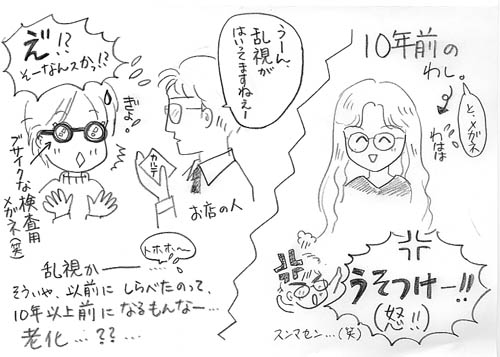 え!?
そーなんスかっ!?
ぎょっ
ブサイクな検査用
メガネ(笑)
うーん、
乱視が
はいってますねぇー
カルテ
お店の人
トホホ〜
乱視かー……
そういや、以前にしらべたのって、
10年以上前になるもんなー…
老化…??…
10年前の
わし。
と、メガネ
わはは
うそつけー!!
(怒!!)
スンマセン…(笑)